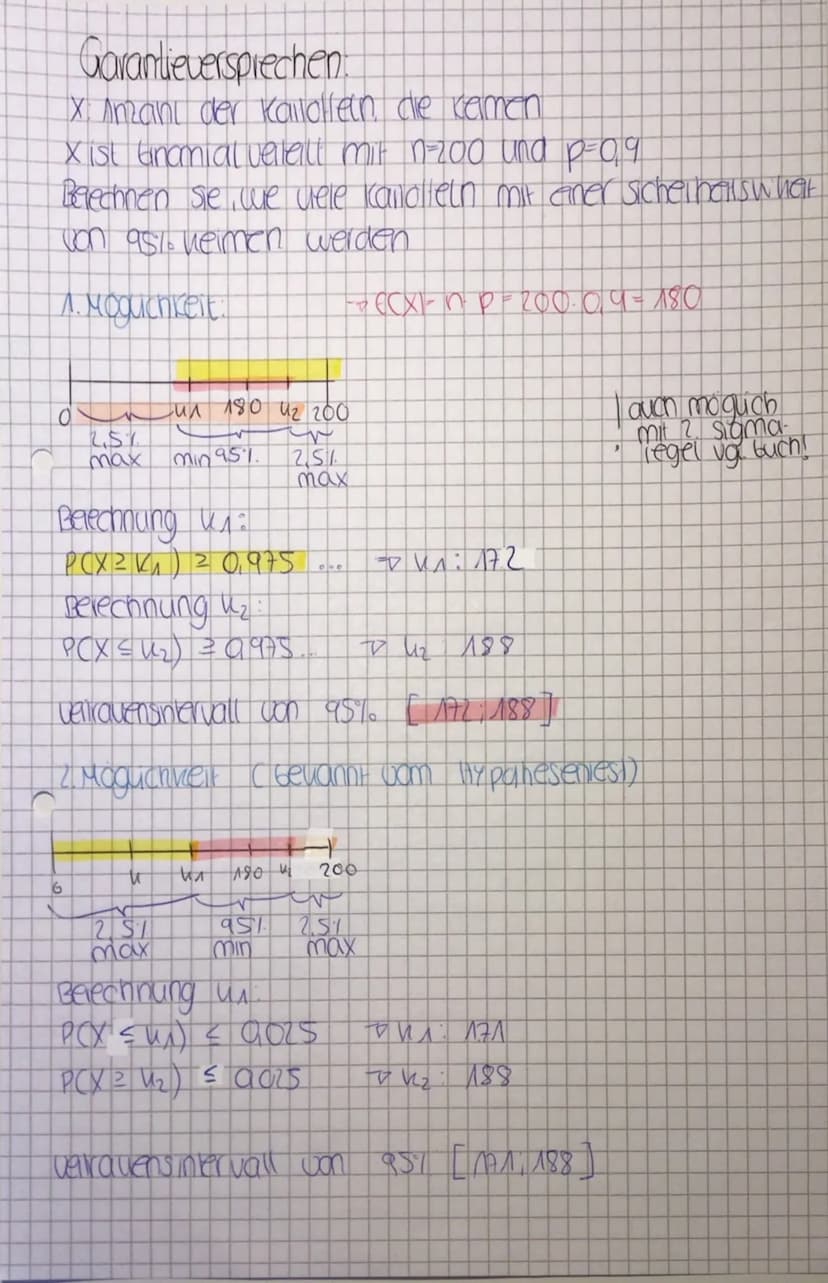 Garantieversprechen:
X: Anzahl der Kartoffeln, die keimen
X ist binomialverteilt mit n=200 und p=0,9
Berechnen Sie, wie viele Kartoffeln mit einer Sicherheitswkeit
von 95% keimen werden
1. Möglichkeit: → E(X)= n·p = 200·0,9 = 180
0 k1 180 k2 200
2,5% max min 95% 2,5% max
! auch möglich
mit 2. sigma-
regel vgl. Buch!
Berechnung k1:
P(X ≥ k1) ≥ 0,975 ... ⇒ k1: 172
Berechnung k2:
P(X ≤ k2) ≥ 0,975... ⇒ k2: 188
Vertrauensintervall von 95% [172; 188]
2. Möglichkeit (bekannt vom Hypothesentest)
0 k k1 180 200
2,5% max 95% min 2,5% max
Berechnung k1:
P(X ≤ k1) ≤ 0,025 ⇒ k1: 171
P(X ≥ k2) ≤ 0,025 ⇒ k2: 188
Vertrauensintervall von 95% [171; 188]